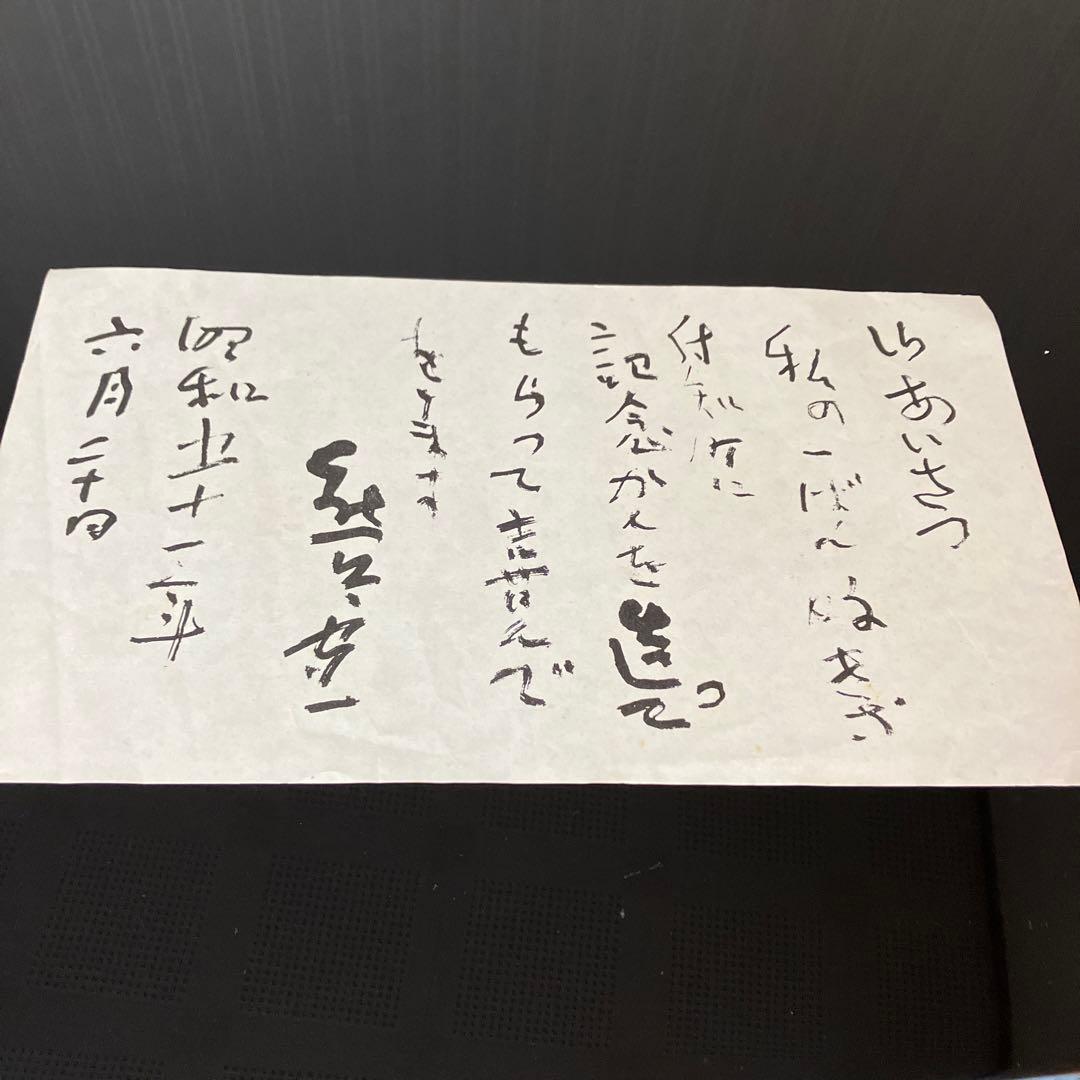 御あいさつ
私の一ばん好きな
付知町に
記念かんを造って
もらって喜んで
をります
熊谷守一
昭和五十一年
六月二十日